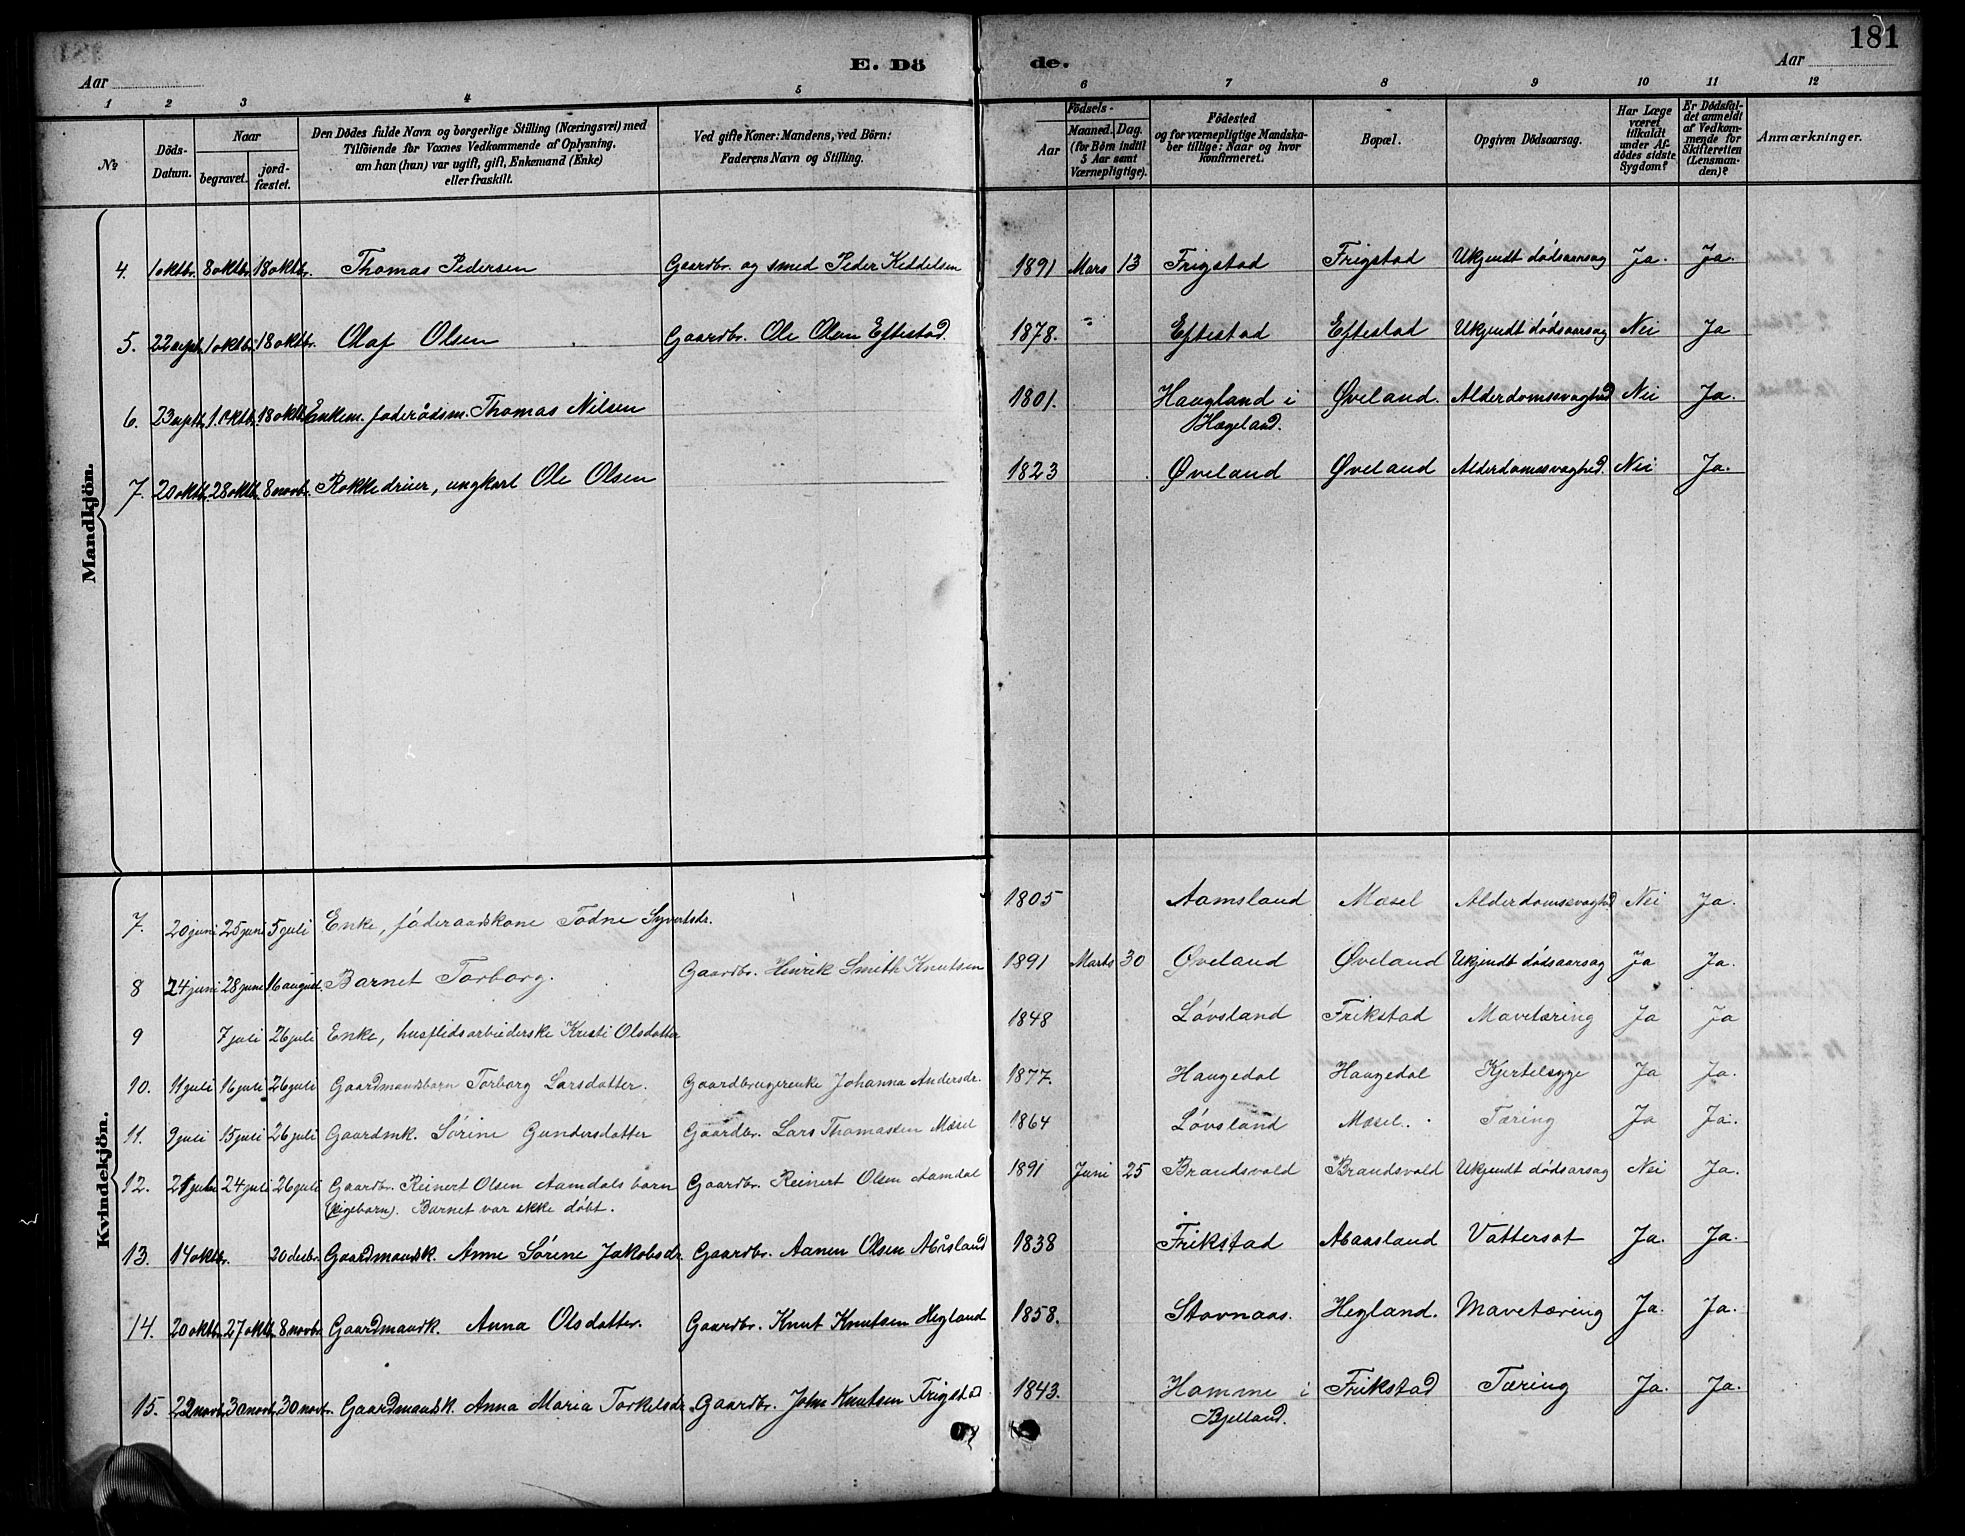 181
E. Dö de.
Aar
Aar
1 2 3 4 5 6 7 8 9 10 11 12
№
Döds-Datum.
Naar
begravet.
jord-fæstet.
Den Dödes fulde Navn og borgerlige Stilling (Næringsvei) med
Tilföiende for Voxnes Vedkommende af Oplysning,
om han (hun) var ugift, gift, Enkemand (Enke)
eller fraskilt.
Ved gifte Koner: Mandens, ved Börn:
Faderens Navn og Stilling.
Födsels-
Aar
Maaned. Dag.
(for Börn indtil
5 Aar samt
Værnepligtige).
Födested
og for værnepligtige Mandska-
ber tillige: Naar og hvor
konfirmeret.
Bopæl.
Opgiven Dödsaarsag.
Har Læge
været
tilkaldt
under Af-
dödes sidste
Sygdom?
Er Dödsfal-
det anmeldt
af Vedkom-
mende for
Skifteretten
(Lensman-
den)?
Anmærkninger.
Mandkjön.
4. 1 oktbr. 8 oktbr. 18 oktbr. Thomas Pedersen Gaardbr. og smed Peder Keddelsen 1891 Mars 13 Frigstad Frigstad Ukjendt dødsaarsag Ja. Ja.
5. 22 sept. 1 oktbr. 18 oktbr. Olaf Olsen Gaardbr. Ole Olsen Eftestad. 1878. " Eftestad Eftestad Ukjendt dødsaarsag Nei Ja
6. 23 sptb. 1. oktb. 18 oktb. Enkem. føderådsm. Thomas Nilsen 1801. Haugland i Øveland. Alderdomssvaghed Nei Ja.
Hægeland.
7. 20 oktb. 28 oktb. 8 novbr. Rokkedreier, ungkarl Ole Olsen 1823 Øveland Øveland Alderdomssvaghed. Nei Ja.
Kvindekjön.
7. 20 juni 25 juni 5 juli Enke, føderaadskone Todne Syvertsdr. 1805 Aamsland Mæsel Alderdomssvaghed Nei Ja.
8 24 juni 28 juni 16 august. Barnet Torborg. Gaardbr. Hinrik Smith Knutsen 1891 Marts 30 Øveland Øveland Ukjendt dødsaarsag Ja Ja.
9 7 juli 26 juli Enke, husflidsarbeiderske Kristi Olsdatter 1848 Løvsland Frikstad Mavetæring Ja Ja
10. 11 juli 16 juli 26 juli Gaardmandsbarn Torborg Larsdatter. Gaardbrugerenke Johanna Andersdr. 1877. Haugedal Haugedal Kjertelsyge Ja Ja.
11. 9 juli 15 juli 26 juli Gaardmk. Sørine Gundersdatter Gaardbr. Lars Thomassen Mæsel 1864 Løvsland Mæsel. Tæring Ja Ja.
12. 21 juli 24 juli 26 juli Gaardbr. Reinert Olsen Aamdals barn Gaardbr. Reinert Olsen Aamdal 1891 Juni 25 Brandsvold Brandsvold Ukjendt dødsarsag Nei Ja.
(Pigebarn). Barnet var ikke døbt.
13. 14 oktbr. 20 decbr. Gaardmandsk. Anne Sørine Jakobsdr. Gaardbr. Aanen Olsen Abisland 1838 Frikstad Abaasland Vattersot Ja. Ja.
14. 20 oktbr. 27 oktb. 8 novbr Gaardmandk. Anna Olsdatter. Gaardbr. Knut Knutsen Hegland 1858. Stavnaas. Hegland. Mavetæring Ja. Ja.
15. 22 novb. 30 novb. 30 novbr. Gaardmandsk. Anna Maria Torkelsdr. Gaardbr. John Knutsen Frigstad 1843. Homme i Frikstad Tæring Ja. Ja.
Bjelland.